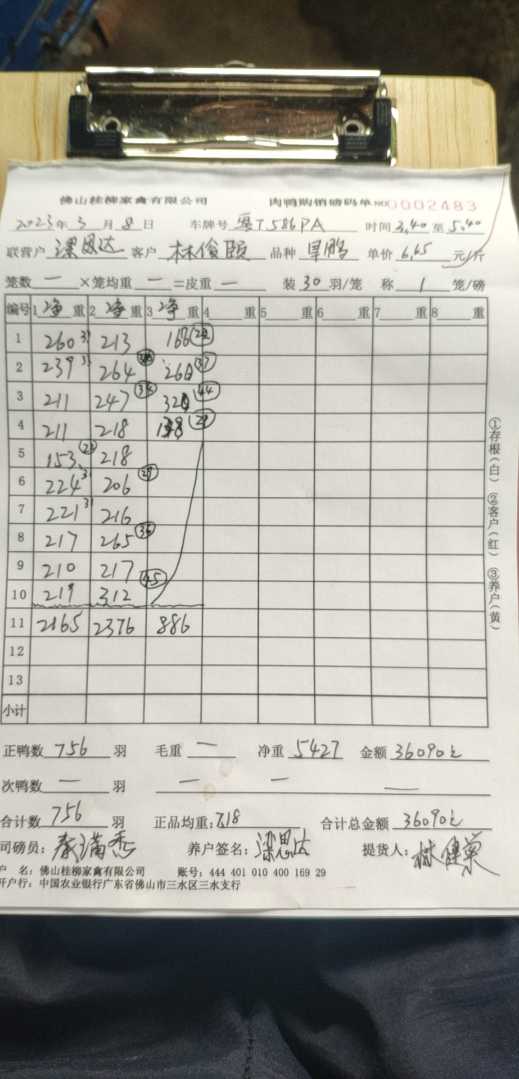 佛山桂柳家禽有限公司 肉鸭购销磅码单 NO 0002483
2023年 3 月 8 日 车牌号 粤T586PA 时间 3,40 至 5,40
联营户 梁恩达 客户 林俊颐 品种 旱鸭 单价 6,65 元/斤
笼数 一 ×笼均重 一 =皮重 一 装 30 羽/笼 称 1 笼/磅
编号 1 净 重 2 净 重 3 净 重 4 重 5 重 6 重 7 重 8 重
1 260 31 213 166
2 239 31 264 260 37
3 211 247 320 44
4 211 218
5 153 218
6 224 31 206 29
7 221 31 216
8 217 265 36
9 210 217
10 219 312 45
11 2165 2376 886
12
13
小计
正鸭数 756 羽 毛重 一 净重 5427 金额 36090元
次鸭数 一 羽 一 一 一
合计数 756 羽 正品均重: 7.18 合计总金额 36090元
司磅员: 养户签名: 梁恩达 提货人: 林
户 名: 佛山桂柳家禽有限公司 账号: 444 401 010 400 169 29
开户行: 中国农业银行广东省佛山市三水区三水支行
①存根(白) ②客户(红) ③养户(黄)